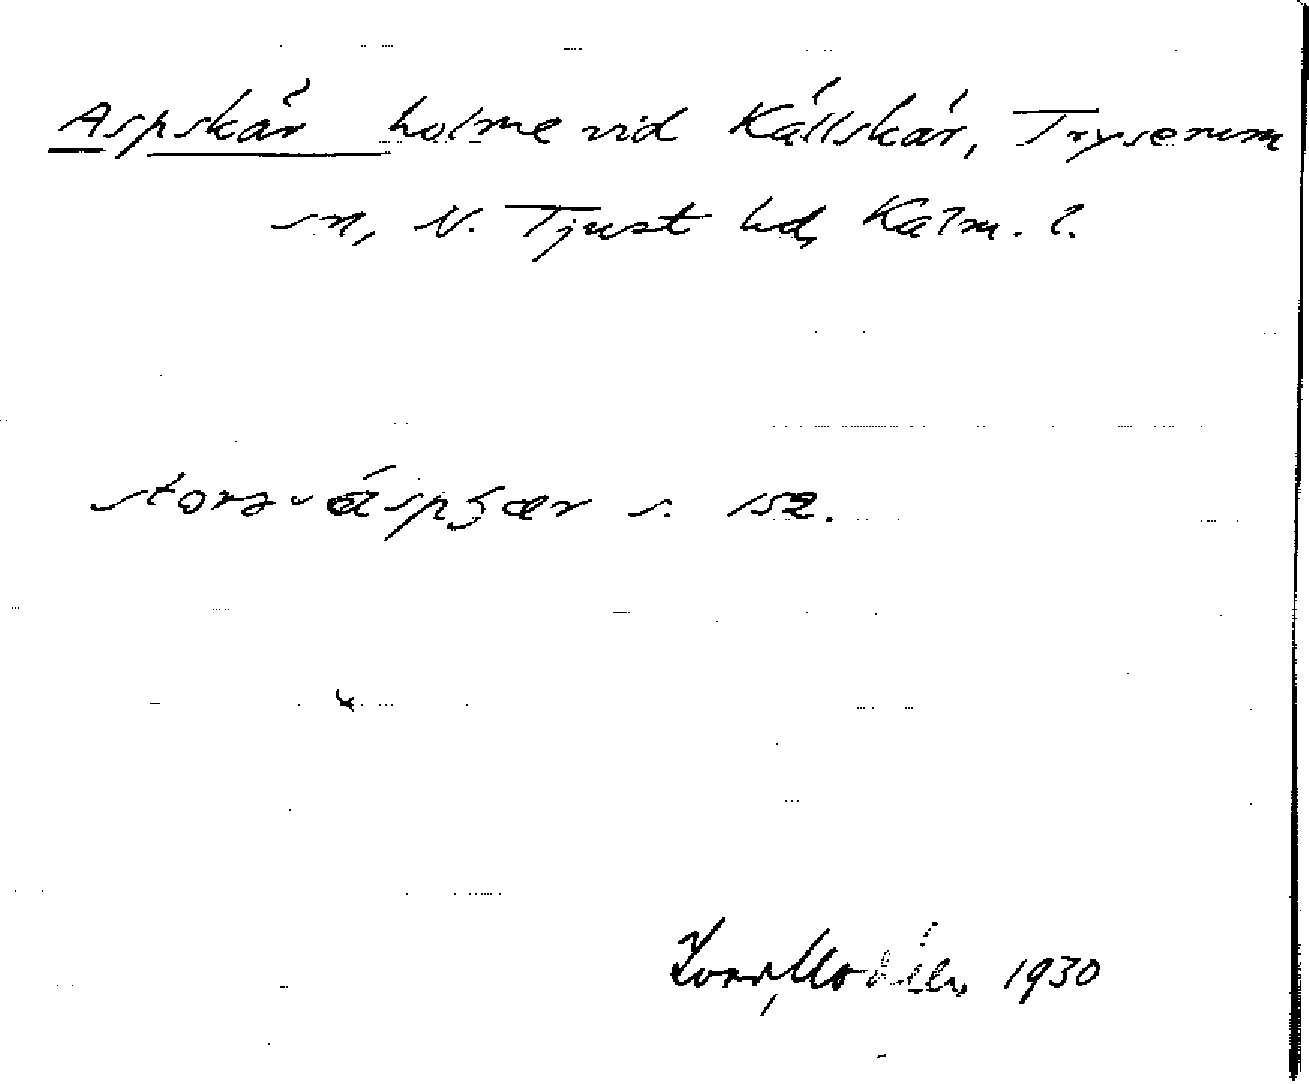 Aspskär holme vid Källskär, Tryserum
sn, N. Tjust hd, Kalm. l.
s. 152.
Ivar Modéer, 1930